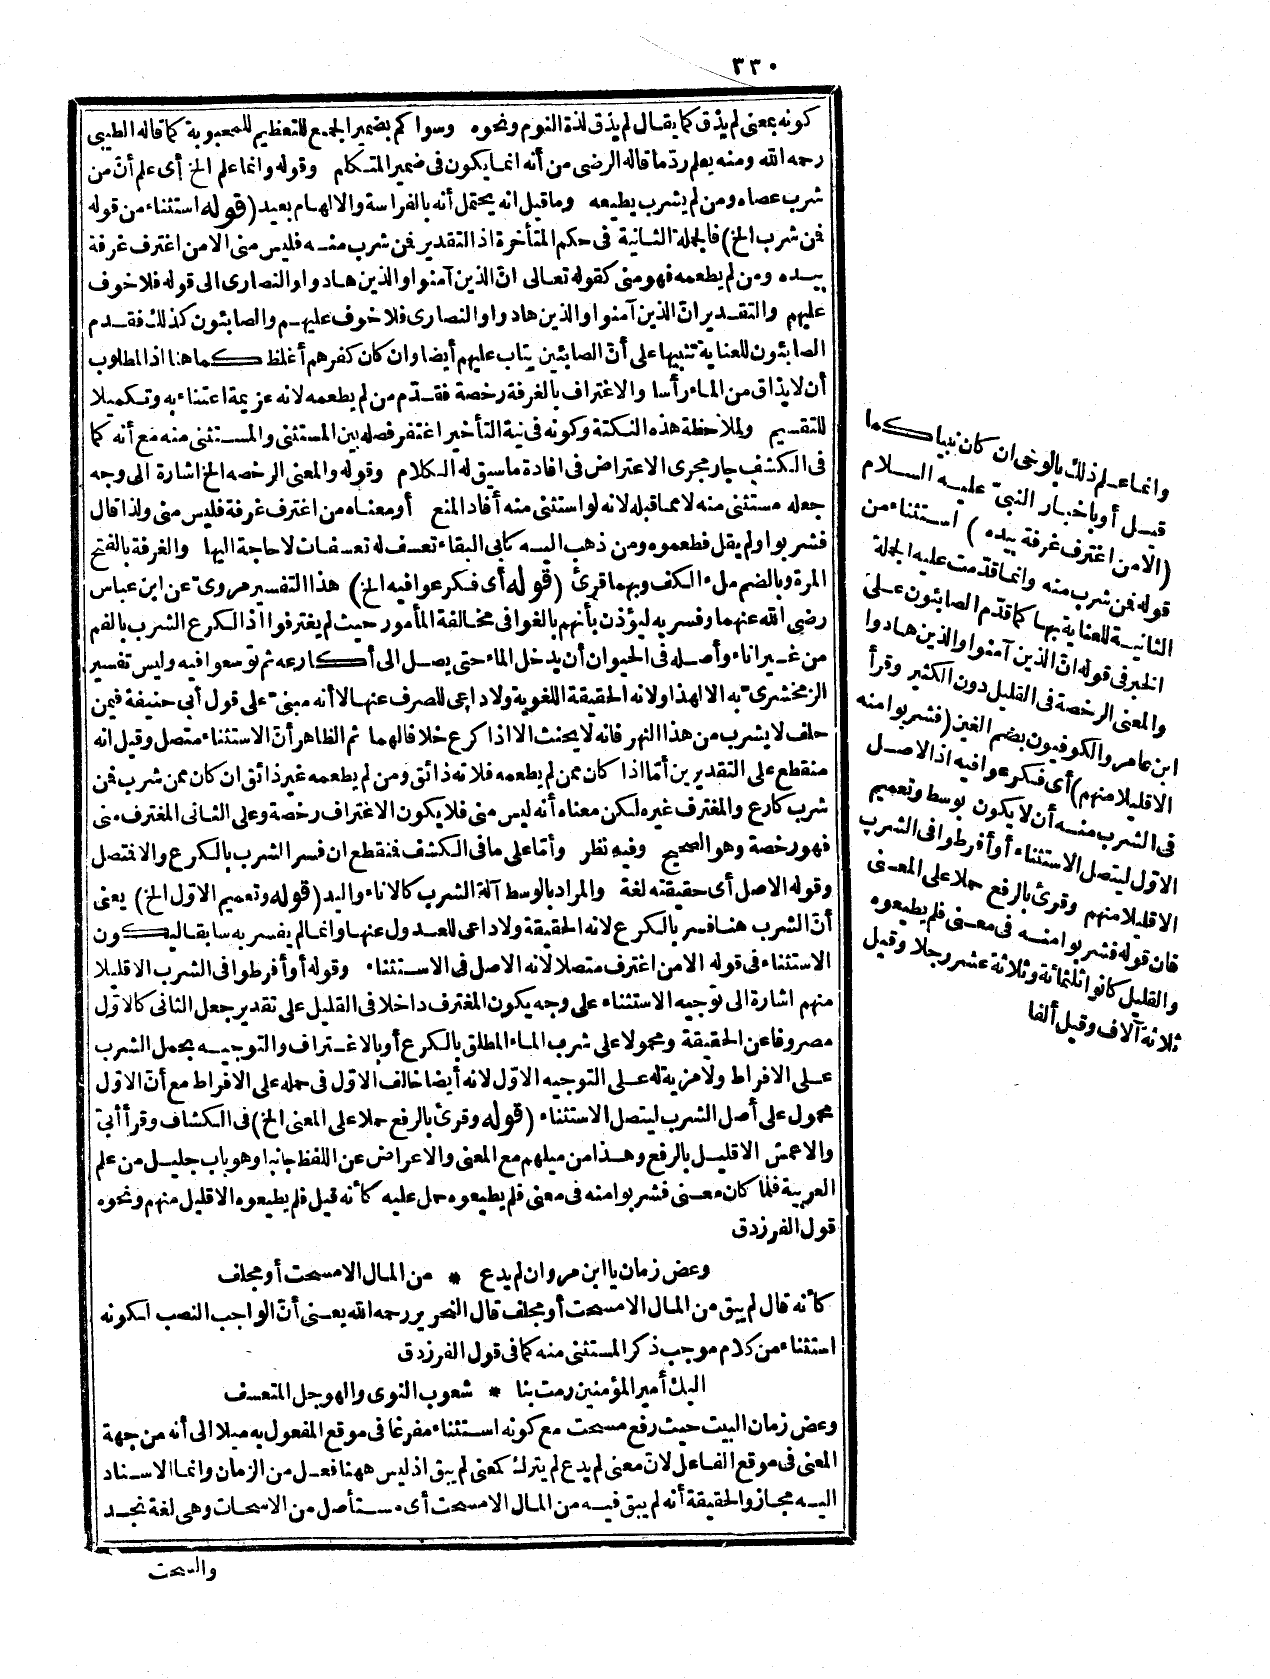 ٣٣٠
كونه بمعنى لم يذق كما يقال لم يذق لذة النوم ونحوه وسواكم بضمير الجمع للتعظيم للمحبوبة كما قاله الطيبى
رحمه الله ومنه يعلم ردّ ما قاله الرضى من أنه انما يكون فى ضمير المتكلم وقوله وانما علم الخ أى علم أنّ من
شرب عصاه ومن لم يشرب يطيعه وما قيل انه يحتمل أنه بالفراسة والالهام بعيد (قوله استثناء من قوله
فمن شرب الخ) فالجملة الثانية فى حكم المتأخرة اذ التقدير فمن شرب منه فليس منى الا من اغترف غرفة
بيده ومن لم يطعمه فهو منى كقوله تعالى انّ الذين آمنوا والذين هادوا والنصارى الى قوله فلا خوف
عليهم والتقدير انّ الذين آمنوا والذين هادوا والنصارى فلا خوف عليهم والصابئون كذلك فقدم
الصابئون للعناية تنبيها على أنّ الصابئين يتاب عليهم أيضا وان كان كفرهم أغلظ كما هنا اذ المطلوب
أن لا يذاق من الماء رأسا والاغتراف بالغرفة رخصة فقدّم من لم يطعمه لانه عزيمة اعتناء به وتكميلا
للتقسيم ولملاحظة هذه النكتة وكونه فى نية التأخير اغتفر فصله بين المستثنى والمستثنى منه مع أنه كما
فى الكشف جار مجرى الاعتراض فى افادة ما سيق له الكلام وقوله والمعنى الرخصه الخ اشارة الى وجه
جعله مستثنى منه لا مما قبله لانه لو استثنى منه أفاد المنع أو معناه من اغترف غرفة فليس منى ولذا قال
فشربوا ولم يقل فطعموه ومن ذهب اليه كابى البقاء تعسف له تعسفات لا حاجة اليها والغرفة بالفتح
المرة وبالضم ملء الكف وبهما قرئ (قوله أى فكرعوا فيه الخ) هذا التفسير مروىّ عن ابن عباس
رضى الله عنهما وفسر به ليؤذن بأنهم بالغوا فى مخالفة المأمور حيث لم يغترفوا اذ الكرع الشرب بالفم
من غير اناء وأصله فى الحيوان أن يدخل الماء حتى يصل الى أكارعه ثم توسعوا فيه وليس تفسير
الزمخشرى به الا لهذا ولانه الحقيقة اللغوية ولا داعى للصرف عنها لا أنه مبنىّ على قول أبى حنيفة فيمن
حلف لا يشرب من هذا النهر فانه لا يحنث الا اذا كرع خلافا لهما ثم الظاهر أنّ الاستثناء متصل وقيل انه
منقطع على التقديرين أمّا اذا كان ممن لم يطعمه فلانه ذائق ومن لم يطعمه غير ذائق ان كان ممن شرب فمن
شرب كارع والمغترف غيره لكن معناه أنه ليس منى فلا يكون الاغتراف رخصة وعلى الثانى المغترف منى
فهو رخصة وهو الصحيح وفيه نظر وأمّا على ما فى الكشف فمنقطع ان فسر الشرب بالكرع والا فتصل
وقوله الاصل أى حقيقته لغة والمراد بالوسط آلة الشرب كالاناء واليد (قوله وتعميم الاوّل الخ) يعنى
أنّ الشرب هنا فسر بالكرع لانه الحقيقة ولا داعى للعدول عنها وانما لم يفسر به سابقا ليكون
الاستثناء فى قوله الا من اغترف متصلا لانه الاصل فى الاستثناء وقوله أو أفرطوا فى الشرب الا قليلا
منهم اشارة الى توجيه الاستثناء على وجه يكون المغترف داخلا فى القليل على تقدير جعل الثانى كالاوّل
مصروفا عن الحقيقة ومحمولا على شرب الماء المطلق بالكرع أو بالاغتراف والتوجيه بحمل الشرب
على الافراط ولا مزية له على التوجيه الاوّل لانه أيضا خالف الاوّل فى حمله على الافراط مع أنّ الاوّل
محمول على أصل الشرب ليتصل الاستثناء (قوله وقرئ بالرفع حملا على المعنى الخ) فى الكشاف وقرأ أبىّ
والاعمش الا قليل بالرفع وهذا من ميلهم مع المعنى والاعراض عن اللفظ جانبا وهو باب جليل من علم
العربية فلما كان معنى فشربوا منه فى معنى فلم يطيعوه حمل عليه كأنه قيل فلم يطيعوه الا قليل منهم ونحوه
قول الفرزدق
وعض زمان يا ابن مروان لم يدع * من المال الا مسحت أو مجلف
كأنه قال لم يبق من المال الا مسحت أو مجلف قال النحرير رحمه الله يعنى أنّ الواجب النصب لكونه
استثناء من كلام موجب ذكر المستثنى منه كما فى قول الفرزدق
اليك أمير المؤمنين رمت بنا * شعوب النوى والهوجل المتعسف
وعض زمان البيت حيث رفع مسحت مع كونه استثناء مفرغا فى موقع المفعول به ميلا الى أنه من جهة
المعنى فى موقع الفاعل لانّ معنى لم يدع لم يترك كمعنى لم يبق اذ ليس ههنا فعل من الزمان وانما الاسناد
اليه مجاز والحقيقة أنه لم يبق فيه من المال الا مسحت أى مستأصل من الاسحات وهى لغة نجد
والسحت
وانما علم ذلك بالوحى ان كان نبيا كما
قيل أو باخبار النبىّ عليه السلام
(الا من اغترف غرفة بيده) استثناء من
قوله فمن شرب منه وانما قدّمت عليه الجملة
الثانية للعناية بها كما قدّم الصابئون على
الخبر فى قوله انّ الذين آمنوا والذين هادوا
والمعنى الرخصة فى القليل دون الكثير وقرأ
ابن عامر والكوفيون بضم الغين (فشربوا منه
الا قليلا منهم) أى فكرعوا فيه اذ الاصل
فى الشرب منه أن لا يكون بوسط وتعميم
الاوّل ليتصل الاستثناء أو أفرطوا فى الشرب
الا قليلا منهم وقرئ بالرفع حملا على المعنى
فان قوله فشربوا منه فى معنى فلم يطيعوه
والقليل كانوا ثلثمائة وثلاثة عشر رجلا وقيل
ثلاثة آلاف وقيل ألفا